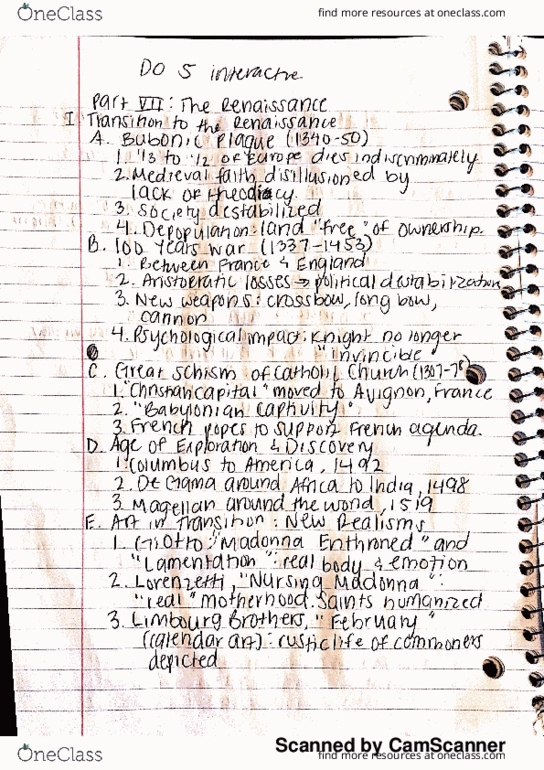 OneClass
find more resources at oneclass.com
DO 5 interactive
Part VII: The Renaissance
I Transition to the Renaissance
A. Bubonic Plaque (1340-50)
1. 1/3 to 1/2 of Europe dies indiscriminately
2. Medieval faith disillusioned by
lack of theodicy.
3. Society destabilized
4. Depopulation: land "free" of ownership.
B. 100 Years War (1337-1453)
1. Between France & England
2. Aristocratic losses → political destabilization
3. New weapons: crossbow, long bow,
cannon
4. Psychological impact: Knight no longer
"invincible"
C. Great Schism of Catholic Church (1307-78)
1. "Christian capital" moved to Avignon, France
2. "Babylonian Captivity"
3. French popes to support French agenda.
D. Age of Exploration & Discovery
1. Columbus to America, 1492
2. De Gama around Africa to India, 1498
3. Magellan around the world, 1519
E. Art in Transition: New Realisms
1. Giotto: "Madonna Enthroned" and
"Lamentation": real body & emotion
2. Lorenzetti, "Nursing Madonna":
"real" motherhood. Saints humanized
3. Limbourg Brothers, "February"
(calendar art): rustic life of commoners
depicted
Scanned by CamScanner
OneClass
find more resources at oneclass.com